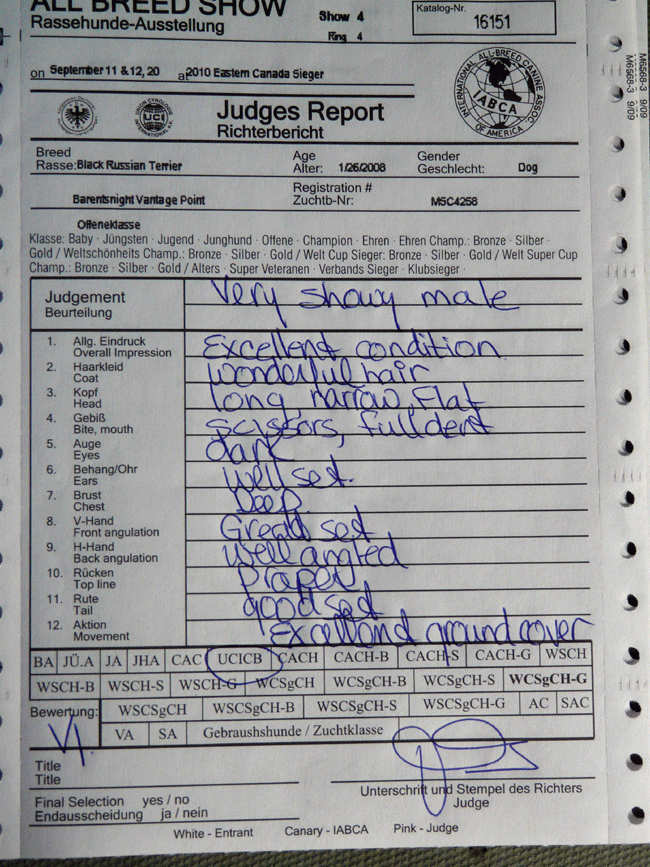 ALL BREED SHOW
Rassehunde-Ausstellung
Show 4
Ring 4
Katalog-Nr.
16151
on September 11 & 12, 20 at 2010 Eastern Canada Sieger
INTERNATIONAL ALL-BREED CANINE ASSOC. OF AMERICA
IABCA
UCI
M6568-3 9/09
M6568-3 9/09
Judges Report
Richterbericht
Breed
Rasse: Black Russian Terrier
Age
Alter: 1/26/2008
Gender
Geschlecht: Dog
Barentsnight Vantage Point
Registration #
Zuchtb-Nr: M5C4258
Offeneklasse
Klasse: Baby · Jüngsten · Jugend · Junghund · Offene · Champion · Ehren · Ehren Champ.: Bronze · Silber ·
Gold / Weltschönheits Champ.: Bronze · Silber · Gold / Welt Cup Sieger: Bronze · Silber · Gold / Welt Super Cup
Champ.: Bronze · Silber · Gold / Alters · Super Veteranen · Verbands Sieger · Klubsieger ·
Judgement
Beurteilung
Very showy male
1. Allg. Eindruck
Overall Impression
Excellent condition
2. Haarkleid
Coat
wonderful hair
3. Kopf
Head
long, narrow, Flat
4. Gebiß
Bite, mouth
scissors, full dent
5. Auge
Eyes
dark
6. Behang/Ohr
Ears
well set.
7. Brust
Chest
Deep
8. V-Hand
Front angulation
Great set
9. H-Hand
Back angulation
well angled
10. Rücken
Top line
Proper
11. Rute
Tail
good set
12. Aktion
Movement
Excellent ground cover
BA JÜ.A JA JHA CAC UCICB CACH CACH-B CACH-S CACH-G WSCH
WSCH-B WSCH-S WSCH-G WCSgCH WCSgCH-B WCSgCH-S WCSgCH-G
Bewertung: WSCSgCH WSCSgCH-B WSCSgCH-S WSCSgCH-G AC SAC
V1. VA SA Gebraushshunde / Zuchtklasse
Title
Title
Unterschrift und Stempel des Richters
Judge
Final Selection yes / no
Endausscheidung ja / nein
White - Entrant Canary - IABCA Pink - Judge